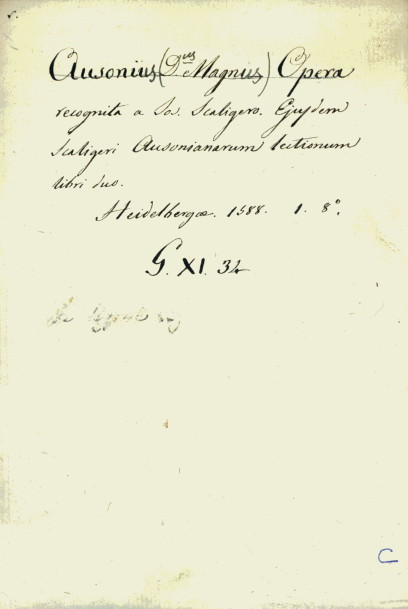 Ausonius (Dus Magnus) Opera
recognita a Jos. Scaligero. Ejusdem
Scaligeri Ausonianarum lectionum
libri duo.
Heidelbergæ. 1588. 1. 8°.
G. XI. 32
C